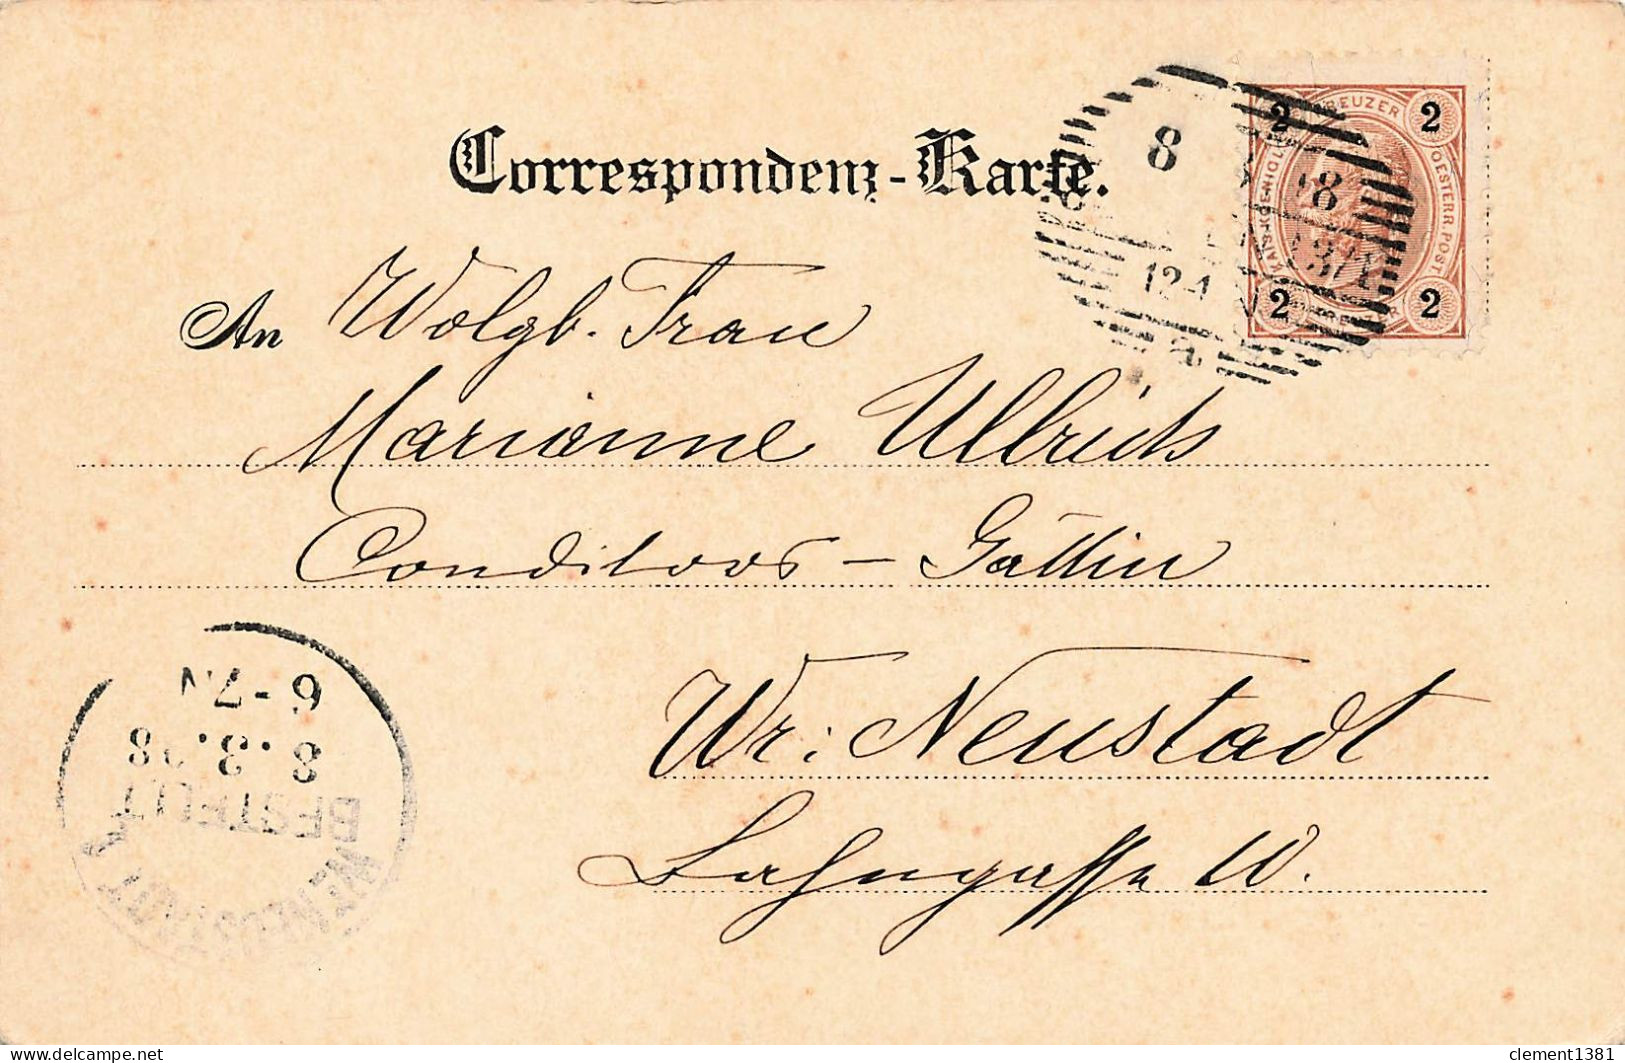 Correspondenz-Karte.
An Wolgb. Frau
Marianne Ullrich
Conditors - Gattin
Wr: Neustadt
2 KREUZER 2
KAIS. KÖNIGL. OESTERR. POST
2 2
8
98
12-1
6-7N
8.3.98
BESTELLT
clement1381 delcampe.net